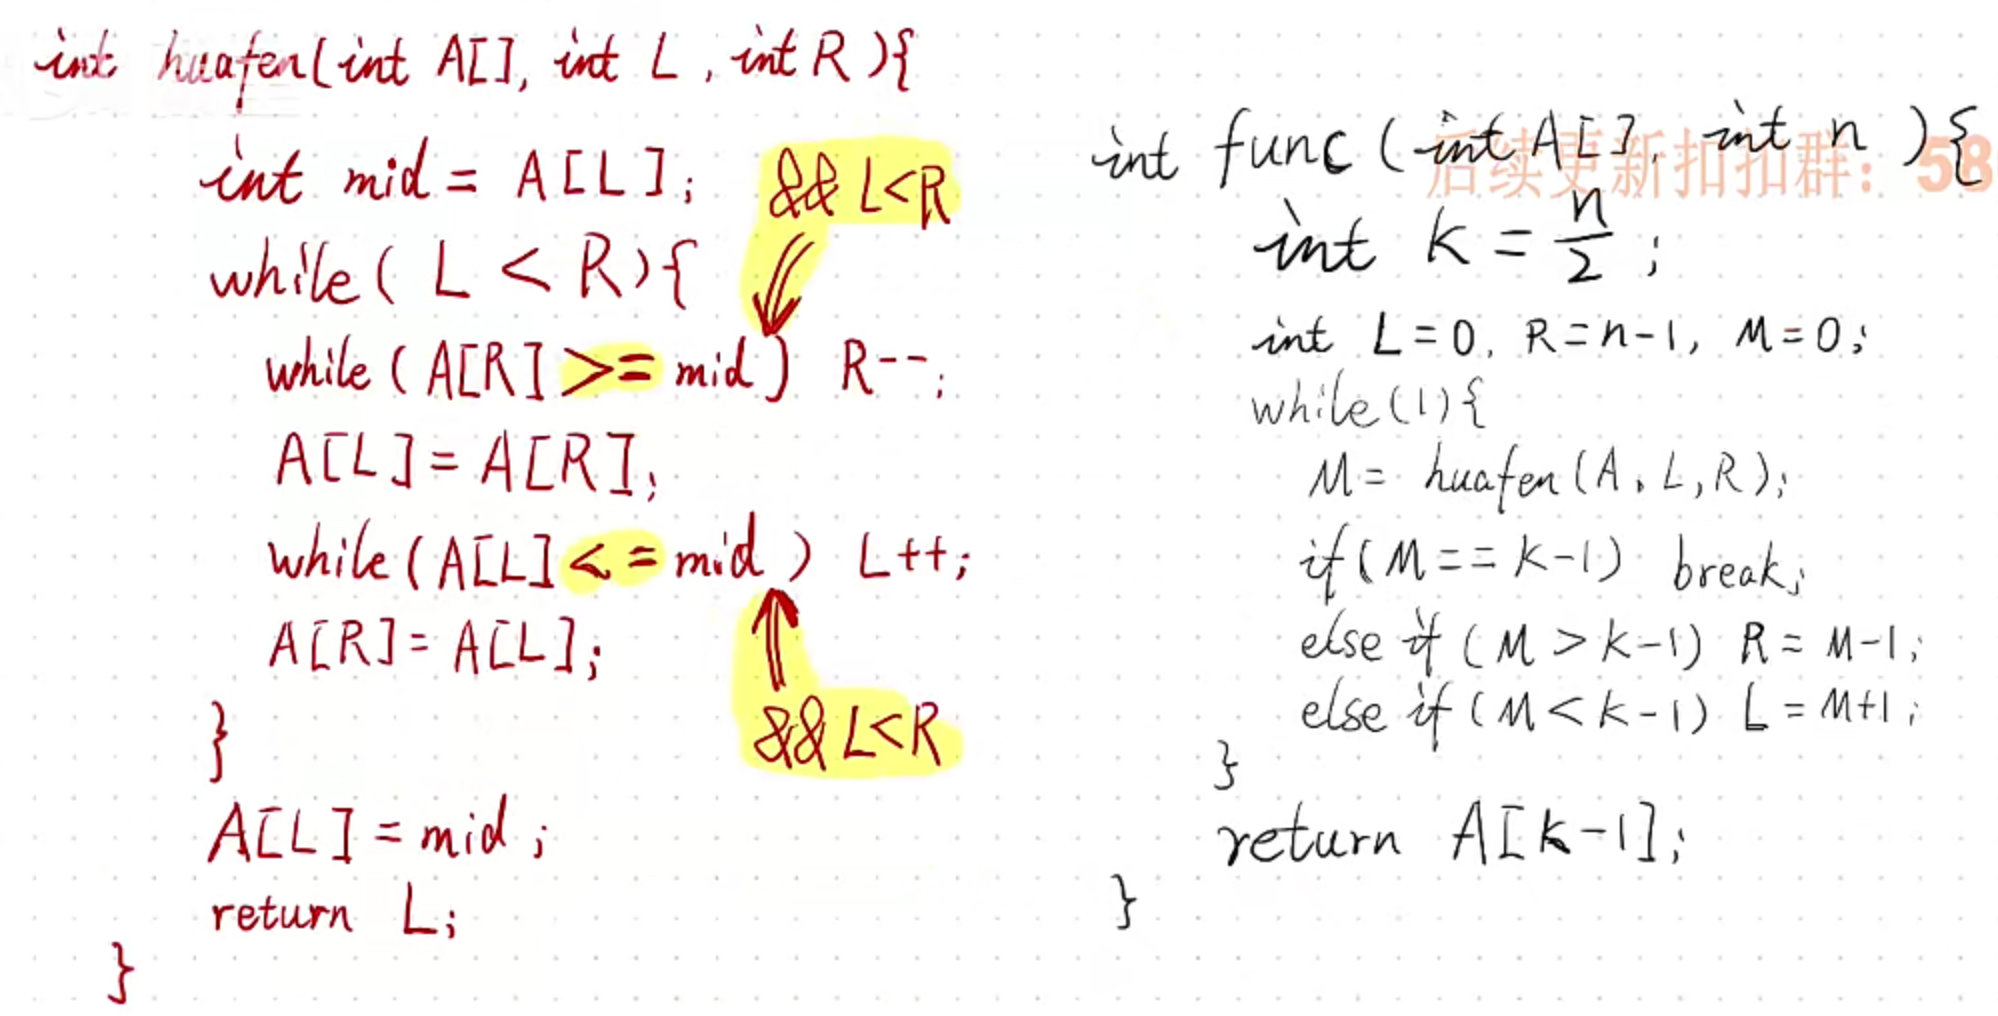 int huafen(int A[], int L, int R){
int mid = A[L];
&& L<R
while( L < R){
while(A[R] >= mid) R--;
A[L]=A[R];
while(A[L] <= mid) L++;
A[R]=A[L];
&& L<R
}
A[L]=mid;
return L;
}
int func(int A[], int n){
后续更新扣扣群：58
int k = n/2;
int L=0, R=n-1, M=0;
while(1){
M= huafen(A,L,R);
if(M==k-1) break;
else if (M>k-1) R=M-1;
else if (M<k-1) L=M+1;
}
return A[k-1];
}